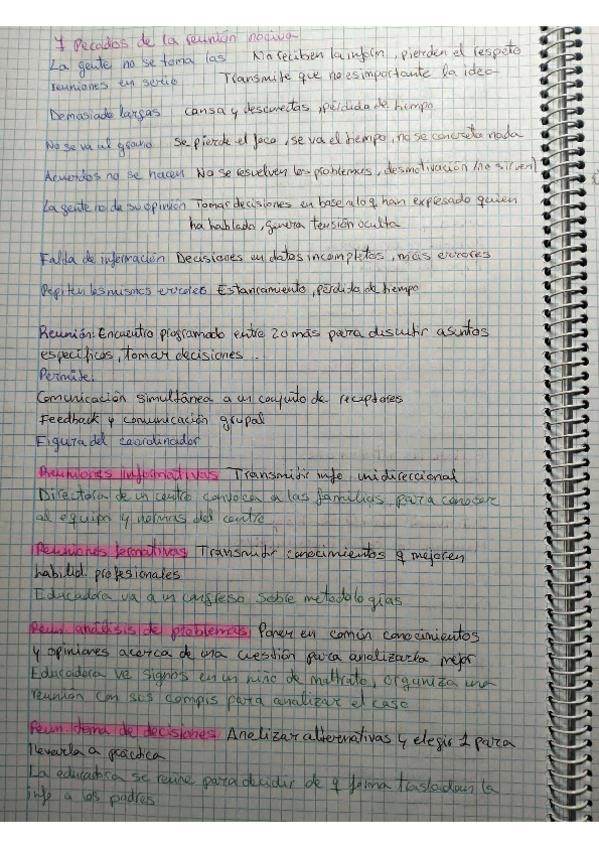 7 Pecados de la reunión nociva
La gente no se toma las No reciben la inform, pierden el respeto
reuniones en serio Transmite que no es importante la idea
Demasiado largas cansa y desconectas, pérdida de tiempo
No se va al grano Se pierde el foco, se va el tiempo, no se concreta nada
Acuerdos no se hacen No se resuelven los problemas, desmotivación (no sirven)
La gente no da su opinión Tomar decisiones en base a lo q han expresado quien
ha hablado, genera tensión oculta
Falta de información Decisiones en datos incompletos, más errores
Repiten los mismos errores Estancamiento, pérdida de tiempo
Reunión: Encuentro programado entre 2 o más para discutir asuntos
específicos, tomar decisiones..
Permite:
Comunicación simultánea a un conjunto de receptores
Feedback y comunicación grupal
Figura del coordinador
Reuniones informativas Transmitir info unidireccional
Directora de un centro convoca a las familias para conocer
al equipo y normas del centro
Reuniones formativas Transmitir conocimientos q mejoren
habilid. profesionales
Educadora va a un congreso sobre metodologías
Reun análisis de problemas Poner en común conocimientos
y opiniones acerca de una cuestión para analizarla mejor
Educadora ve signos en un niño de maltrato, organiza una
reunión con sus compis para analizar el caso
Reun. toma de decisiones Analizar alternativas y elegir 1 para
llevarla a práctica
La educadora se reúne para decidir de q forma trasladan la
info a los padres